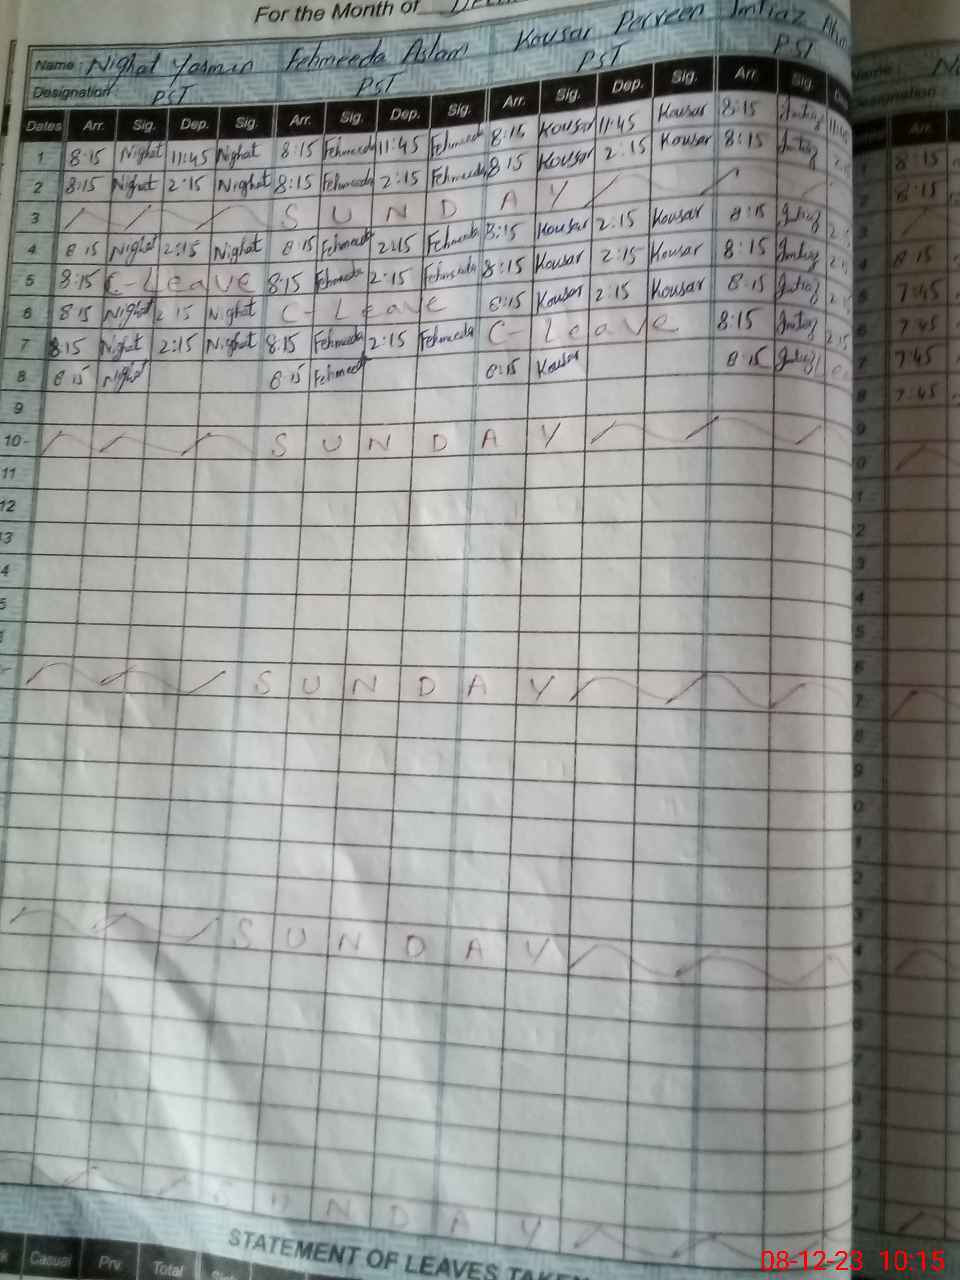 For the Month of
Name: Nighat Yasmin Fehmeeda Aslam Kousar Perveen Imtiaz
Designation: PST PST PST PST
Dates Arr. Sig. Dep. Sig. Arr. Sig. Dep. Sig. Arr. Sig. Dep. Sig. Arr. Sig.
1 8:15 Nighat 11:45 Nighat 8:15 Fehmeeda 11:45 Fehmeeda 8:15 Kousar 11:45 Kousar 8:15 Imtiaz 11:45
2 8:15 Nighat 2:15 Nighat 8:15 Fehmeeda 2:15 Fehmeeda 8:15 Kousar 2:15 Kousar 8:15 Imtiaz
3 SUNDAY
4 8:15 Nighat 2:15 Nighat 8:15 Fehmeeda 2:15 Fehmeeda 8:15 Kousar 2:15 Kousar 8:15 Imtiaz
5 8:15 C-Leave 8:15 Fehmeeda 2:15 Fehmeeda 8:15 Kousar 2:15 Kousar 8:15 Imtiaz
6 8:15 Nighat 2:15 Nighat C-Leave 8:15 Kousar 2:15 Kousar 8:15 Imtiaz
7 8:15 Nighat 2:15 Nighat 8:15 Fehmeeda 2:15 Fehmeeda C-Leave 8:15 Imtiaz 2:15
8 8:15 Nighat 8:15 Fehmeeda 8:15 Kousar 8:15 Imtiaz
9
10 SUNDAY
11
12
SUNDAY
SUNDAY
SUNDAY
STATEMENT OF LEAVES
Casual Prv. Total
Name
Designation
Arr.
8:15
8:15
8:15
7:45
7:45
7:45
7:45
08-12-23 10:15